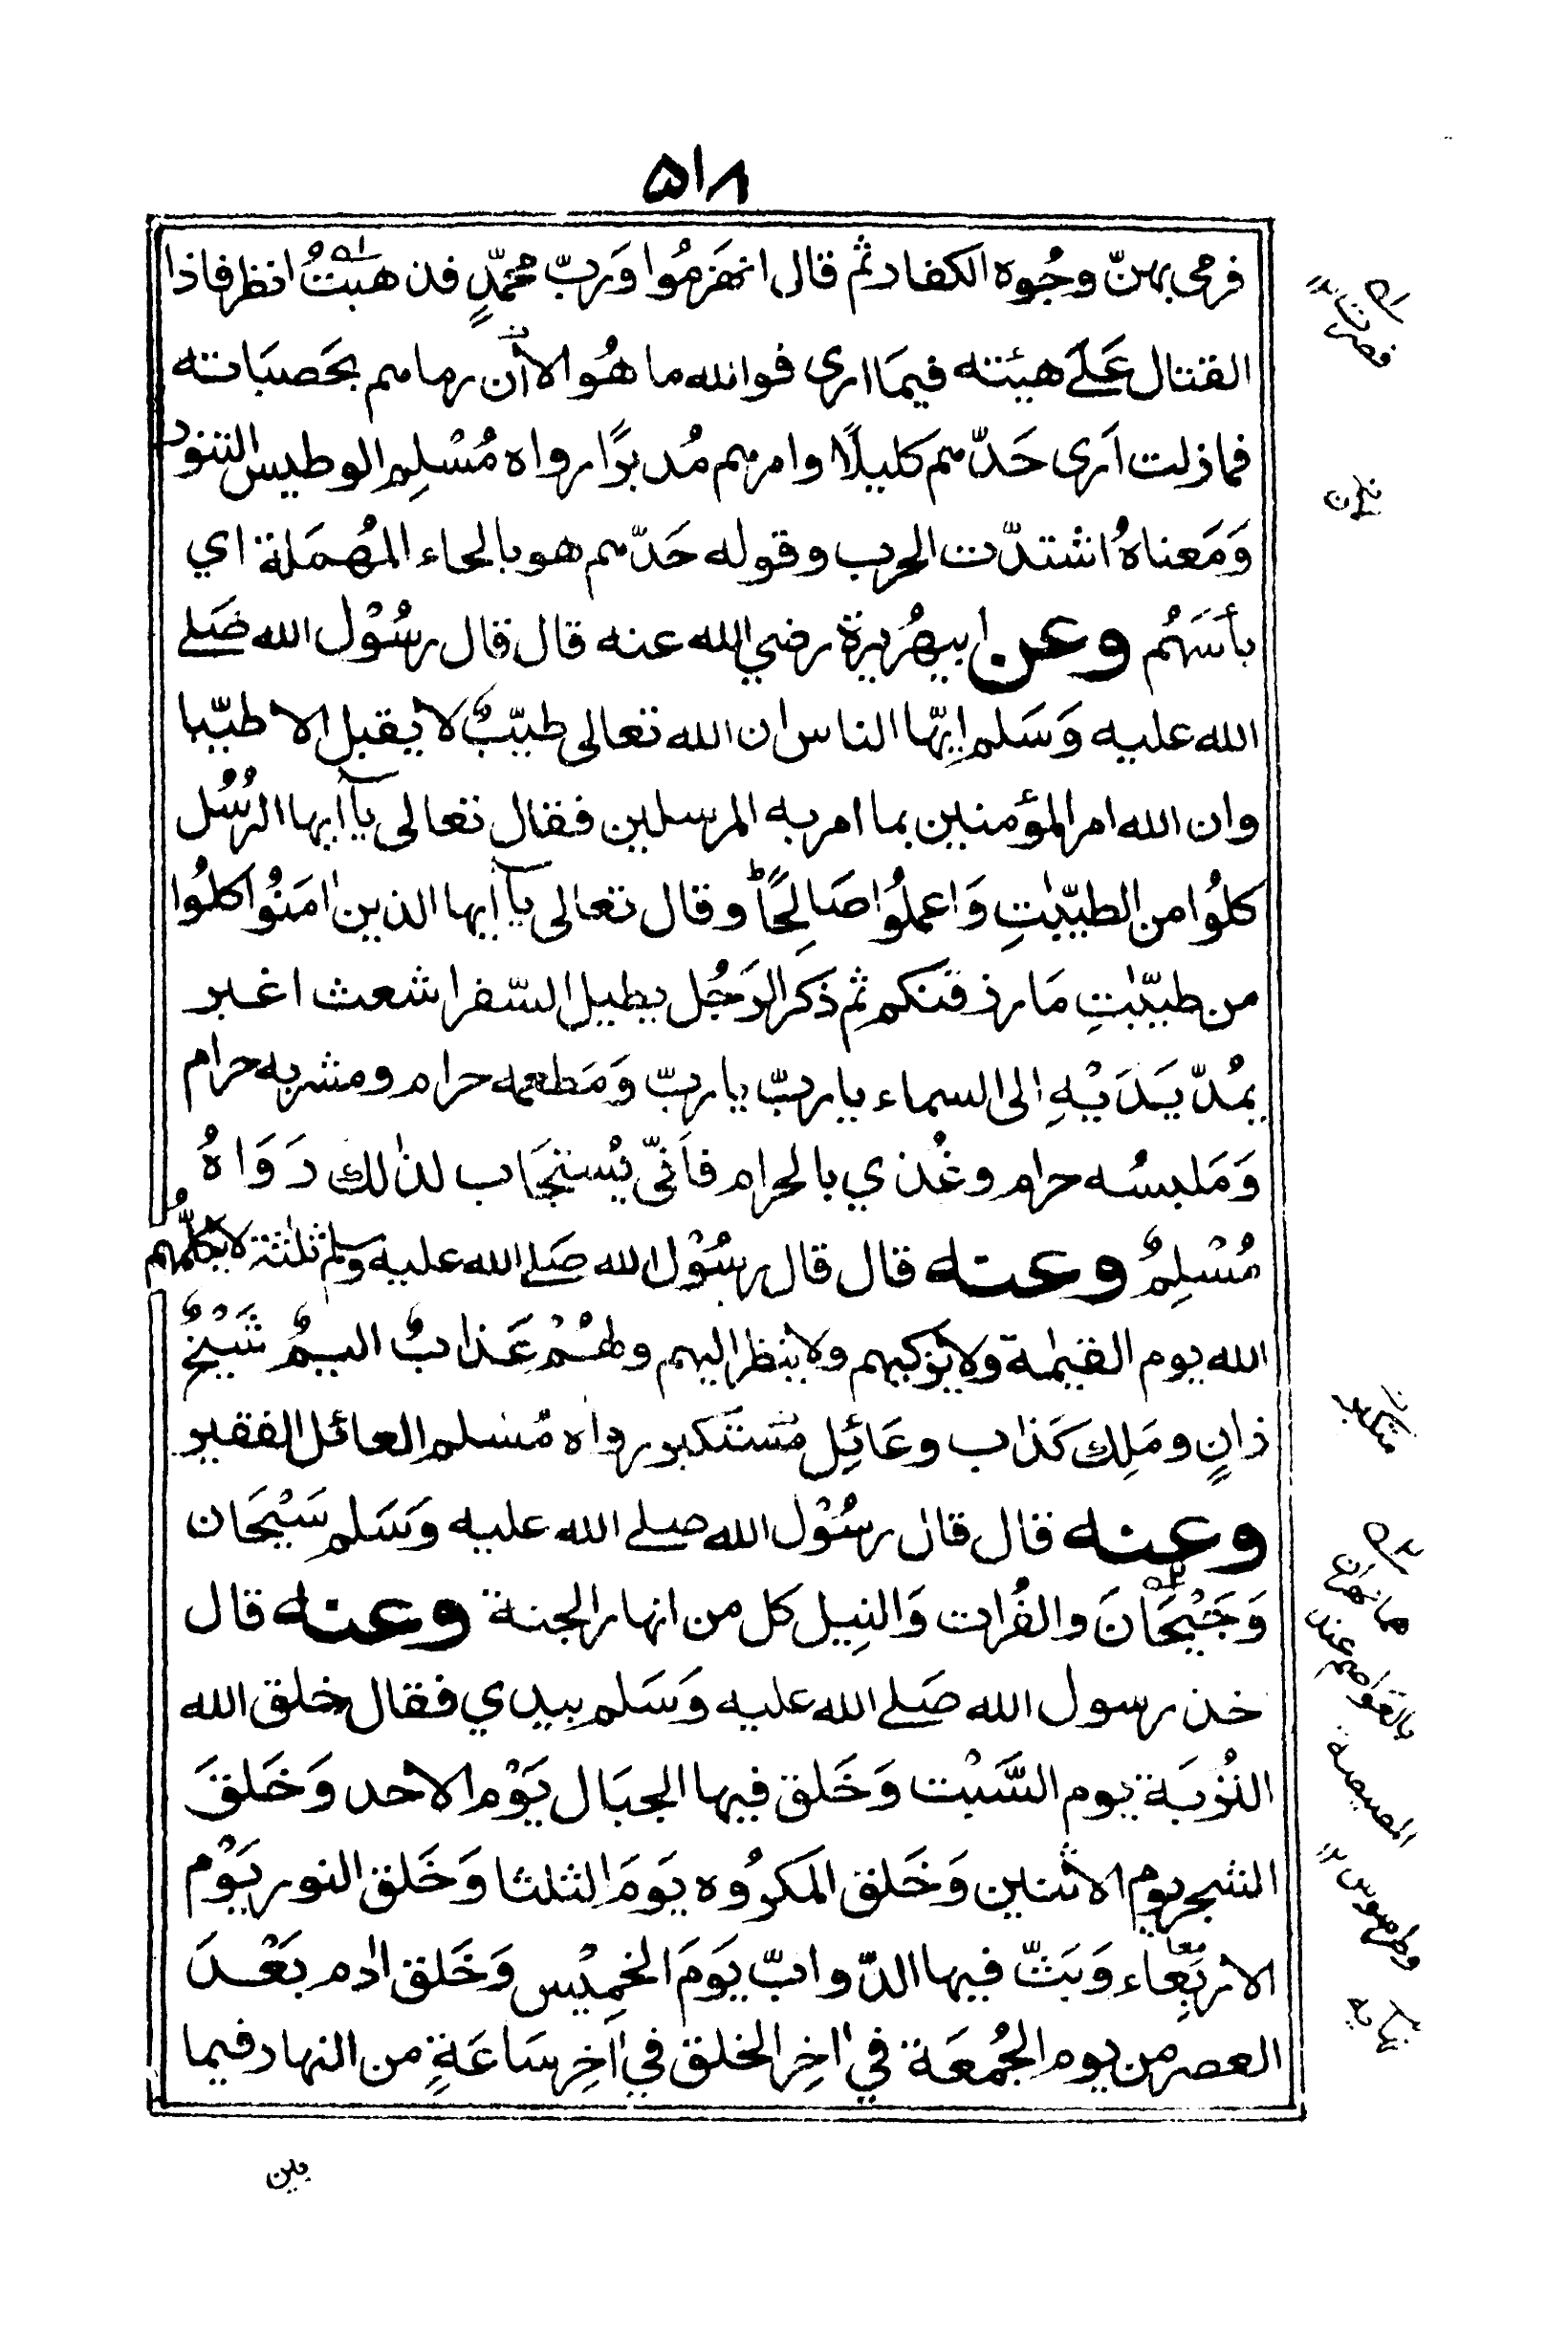 ٥١٨
فرمى بهنّ وجُوه الكفار ثم قال انهَزمُوا وَربّ محمّدٍ فذهبتُ انظر فاذا
القتال عَلَى هيئته فيمَا ارى فوالله ما هُو الا أن رماهم بحَصيَاته
فمازلت اَرى حَدّهم كليلًا وامرهم مُدبرًا رواه مُسْلِم الوطيس التنور
وَمَعناهُ اشتدّت الحرب وقوله حَدّهم هو بالحاء المهُمَلة اي
بأسَهُم وعن ابيهُريرة رضي الله عنه قال قال رسُوْل الله صَلى
الله عليه وَسَلم ايّها الناس ان الله تعالى طيّبٌ لا يقبل الا طيّبا
وان الله امر المؤمنين بما امر به المرسلين فقال تعالى يآأيها الرُسُل
كلُوا من الطيّبٰتِ وَاعملُوا صَالِحًا وقال تعالى يآأيها الذين اٰمَنُوا كلوُا
من طيّبٰتِ مَا رزقنكم ثم ذكر الرَجُل يطيل السّفر اشعث اغبر
يمُدّ يَدَيْهِ الى السماء يا ربّ يا ربّ وَمَطعمه حرام ومشربه حرام
وَمَلبسُه حرام وغُذي بالحرام فاَنّى يُستجَاب لذٰلك رَوَاهُ
مُسْلِمٌ وعنه قال قال رسُوْل الله صَلى الله عليه وسلم ثلٰثة لا يكلّمُهم
الله يوم القيٰمة ولا يُزكيهم ولا ينظر اليهم ولهُمْ عَذابٌ اليمٌ شَيْخٌ
زانٍ ومَلِك كَذاب وعَائِل مُسْتكبر رواه مُسلم العائل الفقير
وعنه قال قال رسُوْل الله صلى الله عليه وَسَلم سَيْحَان
وَجَيْحَانَ والفُرات وَالنِيل كل من انهار الجنة وعنه قال
خذ رسول الله صَلى الله عليه وَسَلم بيدي فقال خلق الله
التُرْبَة يوم السَّبْت وَخَلق فيها الجبَال يَوْم الاحد وَخَلقَ
الشجر يوم الاثنين وَخَلق المكرُوه يَومَ الثلثا وَخَلق النور يَوْم
الاربِعَاء وَبَثّ فيها الدّوابّ يَومَ الخمِيْس وَخَلق اٰدم بَعْدَ
العصر من يوم الجُمُعَة في اٰخِر الخلق في اٰخِر سَاعَةٍ من النهار فيما
فصرت
متكبر
هما نهران
بالعواصم عند
المصيصة
وطرسوس
بين